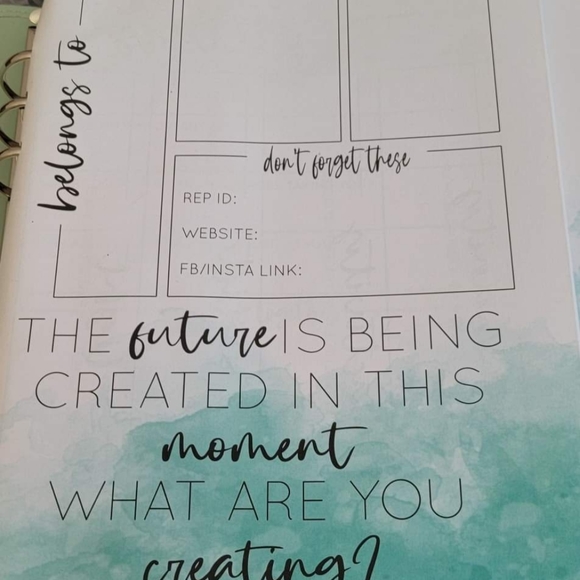 belongs to
don't forget these
REP ID:
WEBSITE:
FB/INSTA LINK:
THE future IS BEING
CREATED IN THIS
moment
WHAT ARE YOU
creating?